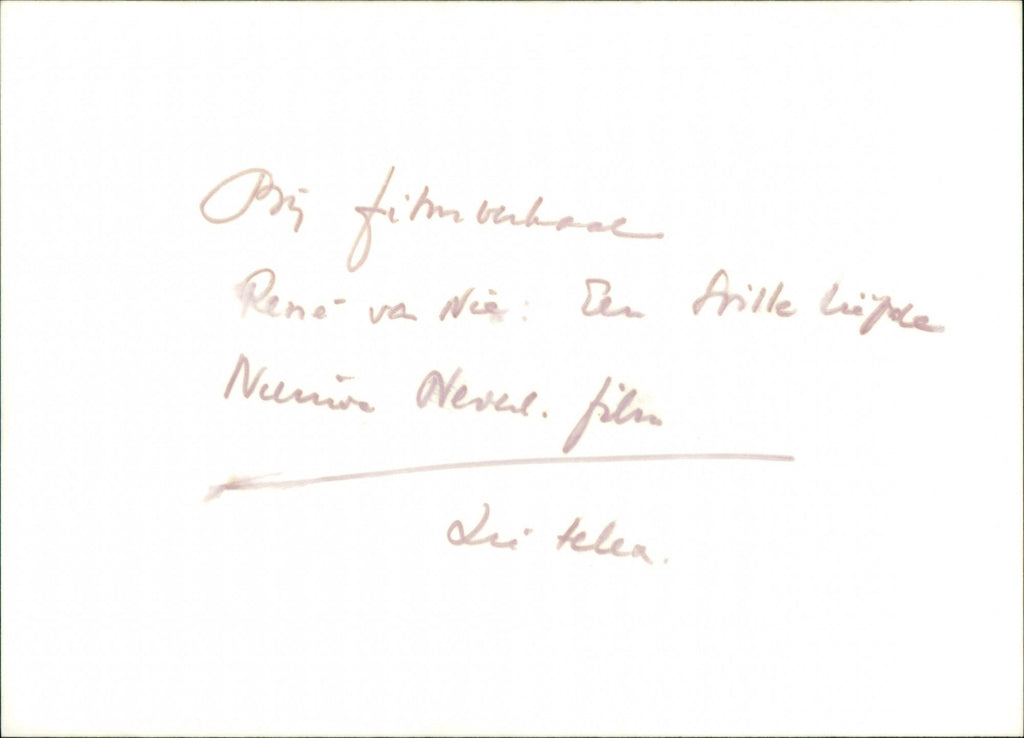 Bij filmverhaal
René van Nie: Een stille liefde
Nieuwe Nederl. film
Zie telex.